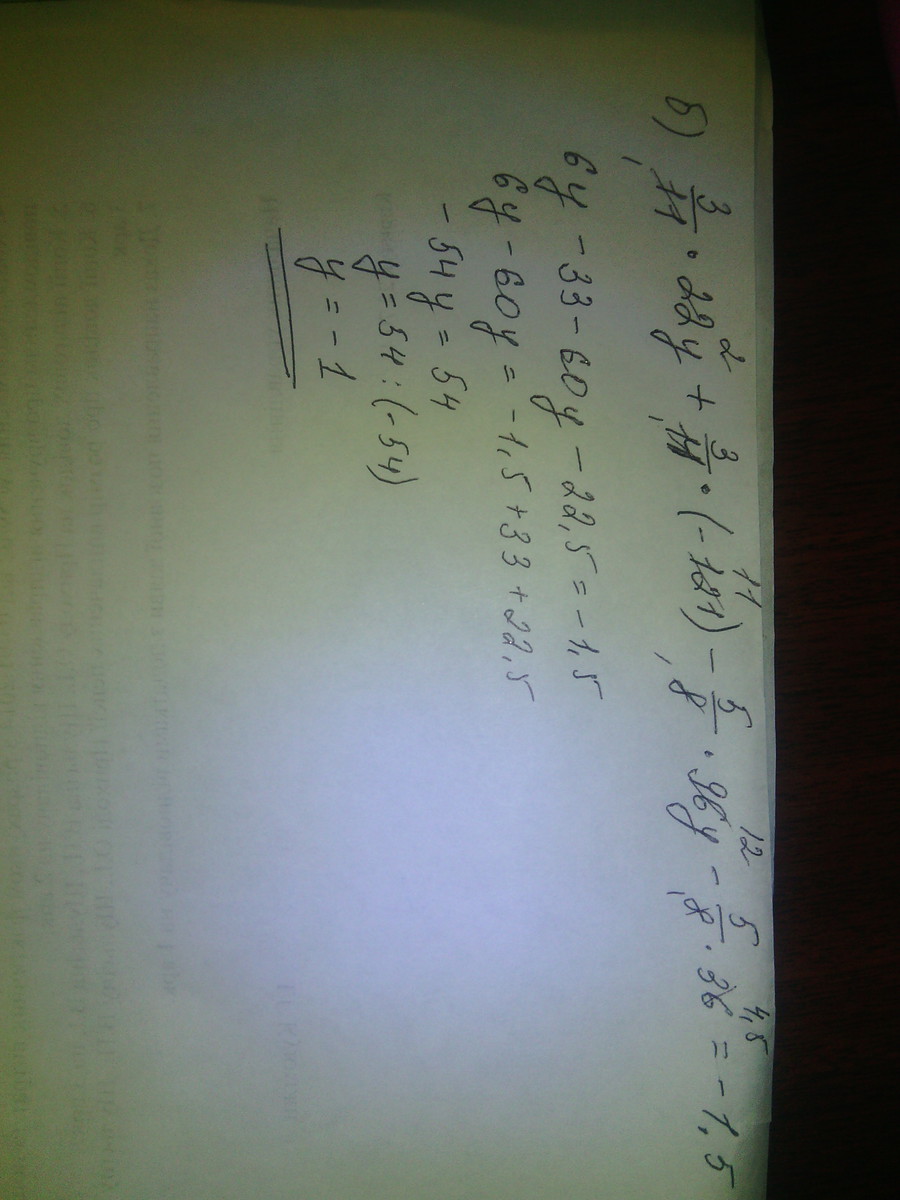 б) 3/11 · 22y + 3/11 · (-121) - 5/8 · 96y - 5/8 · 36 = -1,5
6y - 33 - 60y - 22,5 = -1,5
6y - 60y = -1,5 + 33 + 22,5
- 54y = 54
y = 54 : (-54)
y = -1